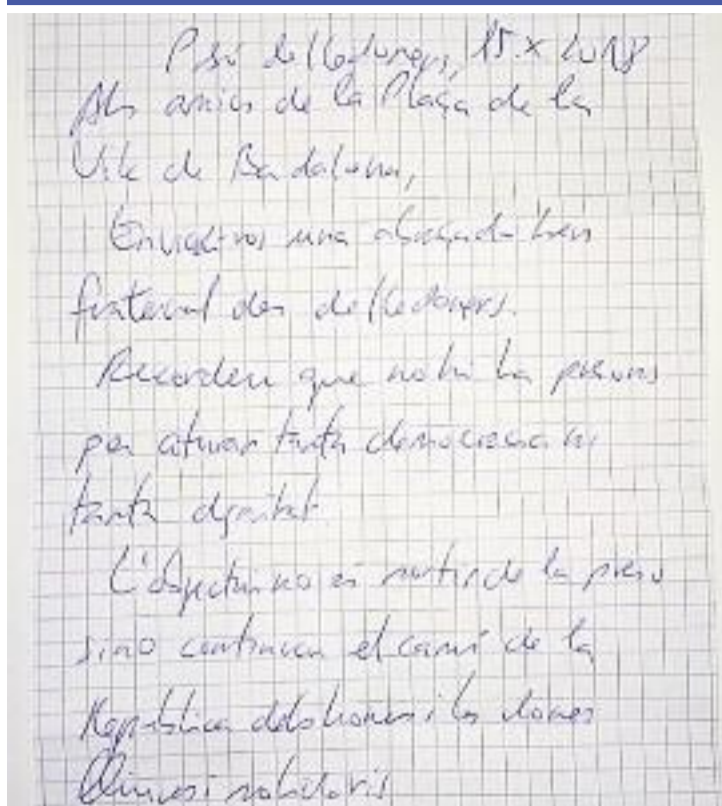 Presó de Lledoners, 15.X.2018
Als amics de la Plaça de la
Vila de Badalona,
Enviar-vos una abraçada ben
fraternal des de Lledoners.
Recordeu que no hi ha presons
per aturar tanta democràcia ni
tanta dignitat.
L'objectiu no és sortir de la presó
sinó continuar el camí de la
República dels homes i les dones
lliures i solidaris